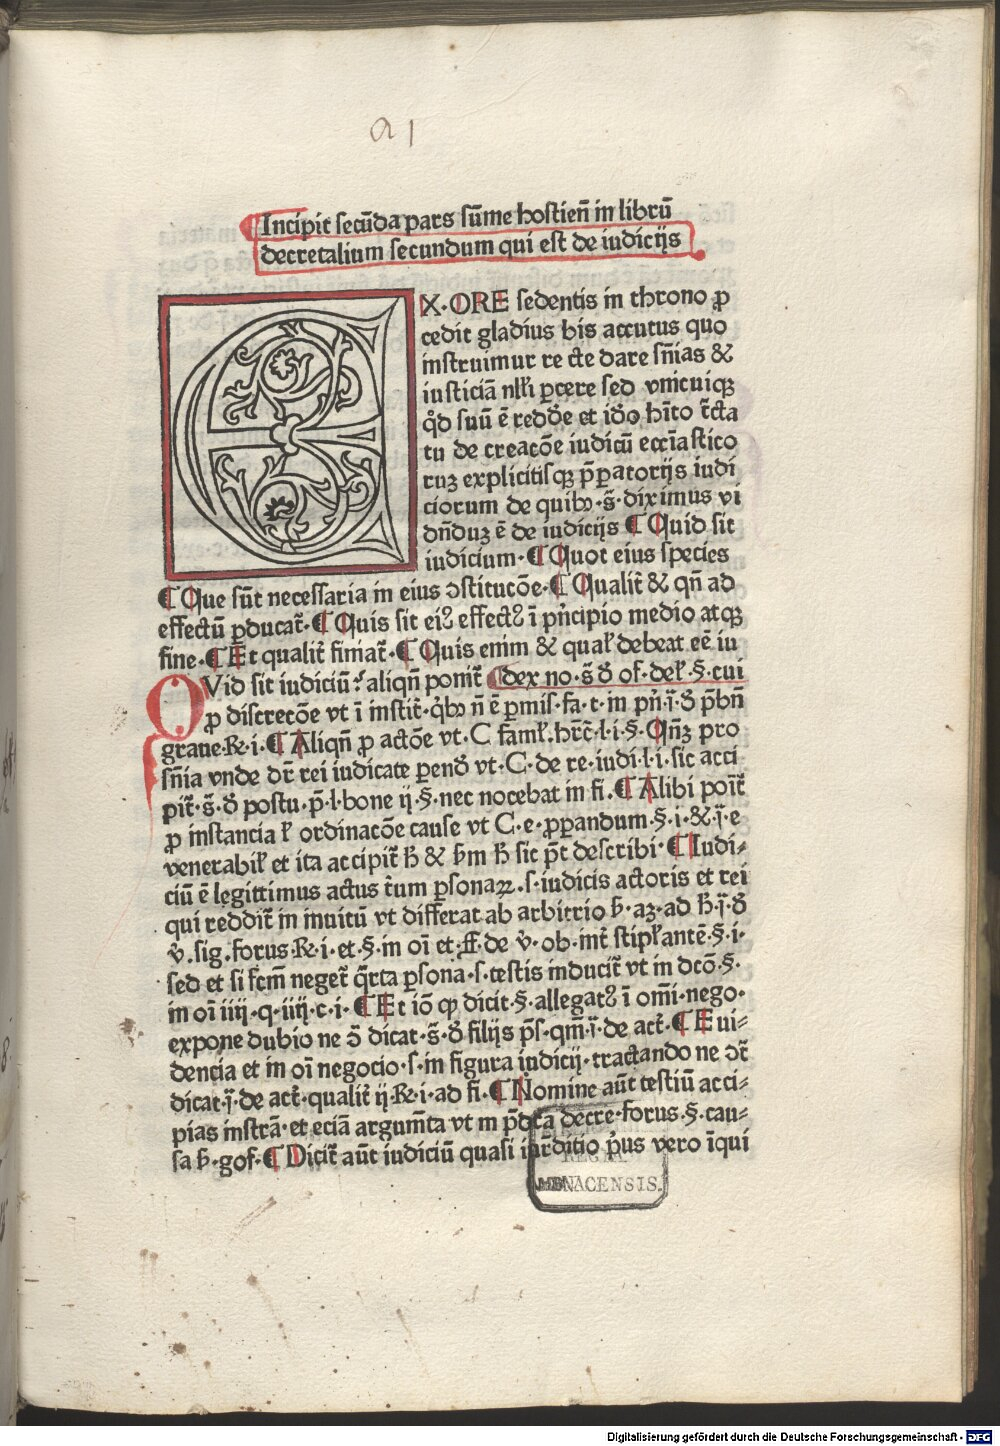 a 1
Incipit secūda pars sūme hostieñ in librū
decretalium secundum qui est de iudicijs
EX·ORE sedentis in throno ꝓ
cedit gladius bis accutus quo
instruimur re cte dare sñias &
iusticiā nlli ꝑcere sed vnicuiqꝫ
qd̾ suū ē reddẽ et ido hito tc̄ta
tu de creacōe iudicū eccīastico
ruꝫ explicitisqꝫ p̄ꝑatorijs iudi
ciorum de quibꝫ·s̄·diximus vi
dñduꝫ ē de iudicijs ¶ Quid sit
iudicium·¶ Quot eius species
¶ Que sūt necessaria in eius ꝯstitucōe·¶ Qualit̄ & qñ ad
effectū ꝑducat̄·¶ Quis sit eiꝰ effectꝰ ī p̄ncipio medio atqꝫ
fine·¶ Et qualit̄ finiat̄·¶ Quis enim & qual̄ debeat eē iu
QVid sit iudiciū? aliqñ ponit̄ ¶ dex no·s̄·ḋ of·del̄·§·cui
ꝓ discrecōe vt ī instit̄·qͥbꝫ ñ ē ꝑmis·fa·t·in pñ·ī·ḋ p̄bñ
graue·R·i·¶ Aliqñ ꝓ actōe vt·C fāml̄·hrc̄·l·i·§·Qñꝫ pro
sñia vnde dr̄ rei iudicate ꝑend̄ vt·C·de re·iudi·l·i·sic acci
pit̄·s̄·ḋ postu·p̄·l·bone ij·§·nec nocebat in fi·¶ Alibi poīt̄
ꝓ instancia l̄ ordinacōe cause vt C·e·ꝓꝑandum·§·i·&·ī·e
venerabil̄ et ita accipit̄ h̄ & ẖm h̄ sic p̄t describi·¶ Iudi-
ciū ē legittimus actus t̄um ꝑsonaꝝ·s·iudicis actoris et rei
qui reddit̄ in inuitū vt differat ab arbitrio ẖ·aꝫ·ad h̄·ī·ḋ
v̄·sig·forus·R·i·et·§·in oī et·ff·de v̄·ob·int̄ stipl̄antē·§·i·
sed et si fc̄m neget̄ q̄rta ꝑsona·s·testis inducit̄ vt in dc̄ō·§·
in oī iiij·q·iiij·c·i·¶ Et iō ꝙ dicit·§·allegatꝰ ī omī·nego·
expone dubio ne ꝯ̄ dicat·s̄·ḋ filijs p̄s·qm̄·ī·de act̄·¶ Eui-
dencia et in oī negocio·s·in figura iudicij·tractando ne ꝯt̄
dicat·ī·de act̄·qualit̄ ij·R·i·ad fi·¶ Nomine aūt testiū acci-
pias instr̄a·et eciā argum̄ta vt in p̄dc̄a decre·forus·§·cau-
sa ẖ·gof·¶ Dicit̄ aūt iudiciū quasi iur̄ditio p̄us vero īqui
REGIA
MONACENSIS.
Digitalisierung gefördert durch die Deutsche Forschungsgemeinschaft - DFG